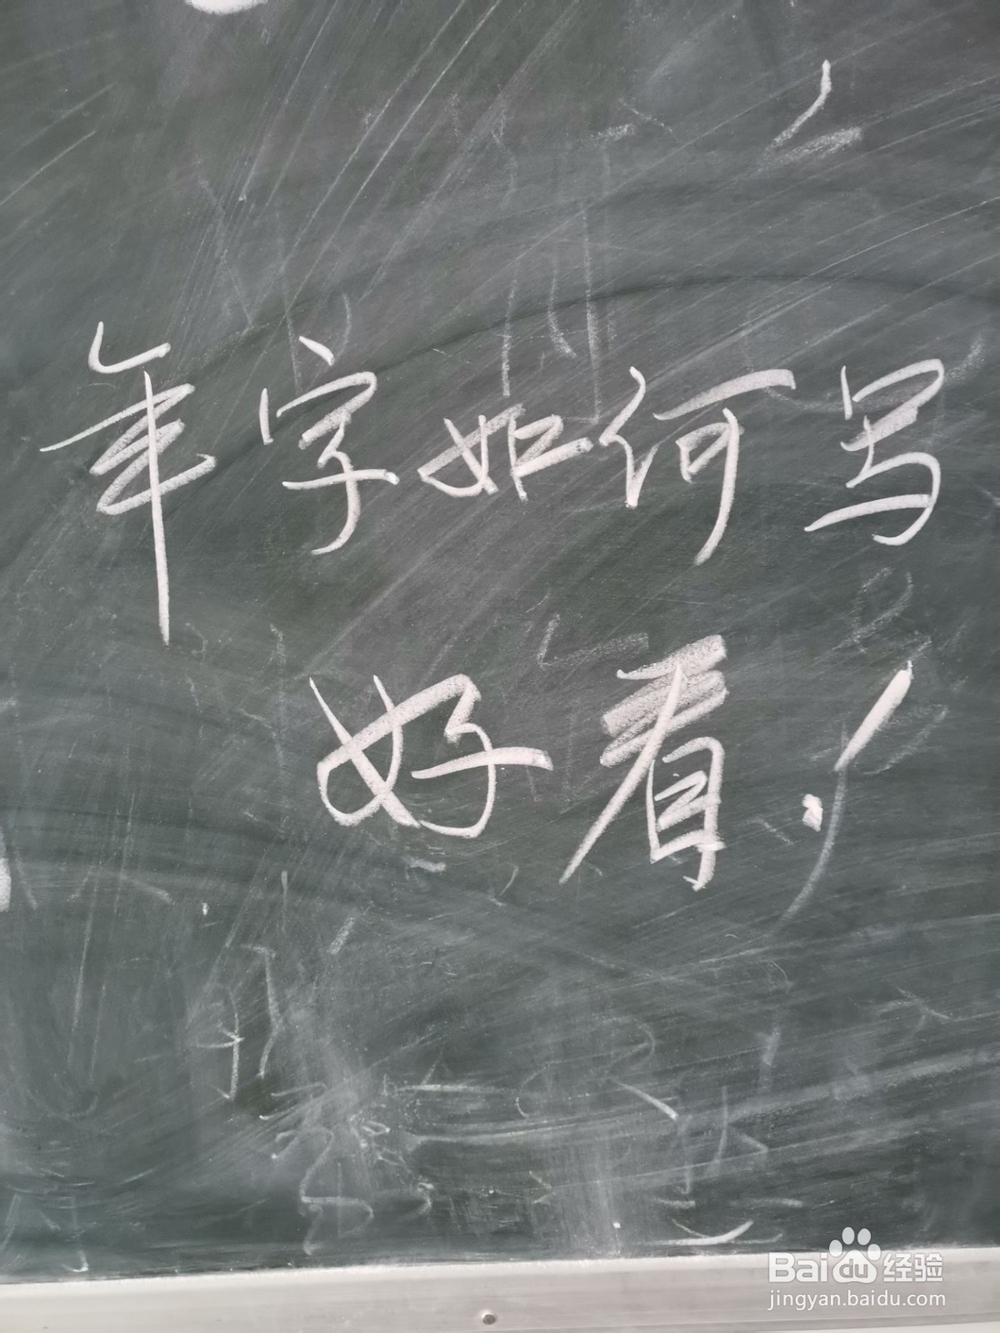 年字如何写
好看！
Baidu经验
jingyan.baidu.com